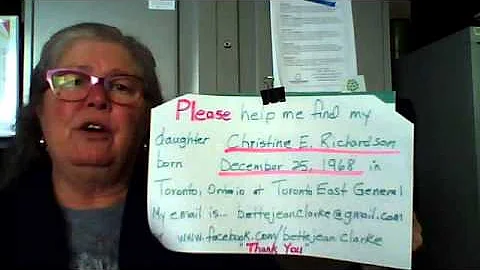 Please help me find my
daughter Christine E. Richardson
born December 25, 1968 in
Toronto, Ontario at Toronto East General
My email is... bettejeanclarke@gmail.com
www.facebook.com/bettejean clarke
"Thank You"